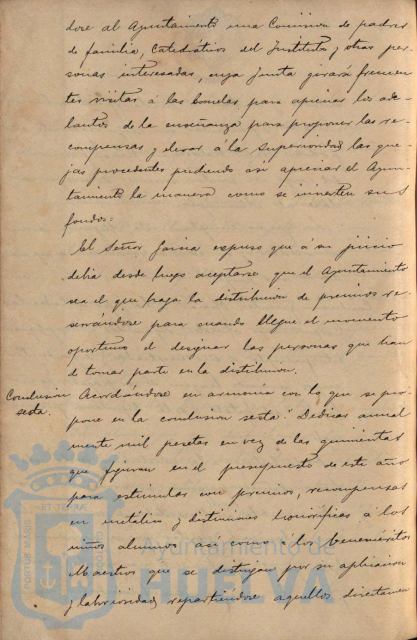 dose al Ayuntamiento una Comision de padres
de familia, Catedráticos del Instituto, y otras per-
sonas interesadas, cuya junta girará frecuen-
tes visitas á las Escuelas para apreciar los ade-
lantos de la enseñanza para proponer las re-
compensas y elevar á la Superioridad las que-
jas procedentes pudiendo asi apreciar el Ayun-
tamiento la manera como se invierten sus
fondos=
El Señor Garcia expuso que á su juicio
debia desde luego aceptarse que el Ayuntamiento
sea el que haga la distribucion de premios re-
servándose para cuando llegue el momento
oportuno el designar las personas que han
de tomar parte en la distribucion.
Conclusion
sesta.
Acordándose en armonia con lo que se pro-
pone en la conclusion sesta "Dedicar anual-
mente mil pesetas en vez de las quinientas
que figuran en el presupuesto de este año
para estimular con premios, recompensas
en metálico y distinciones honoríficas á los
niños alumnos asi como á los beneméritos
Maestros que se distingan por su aplicacion
y laboriosidad, repartiéndose aquellos directamen
PORTUS MARIS ET TERRÆ
Ayuntamiento de
HUELVA